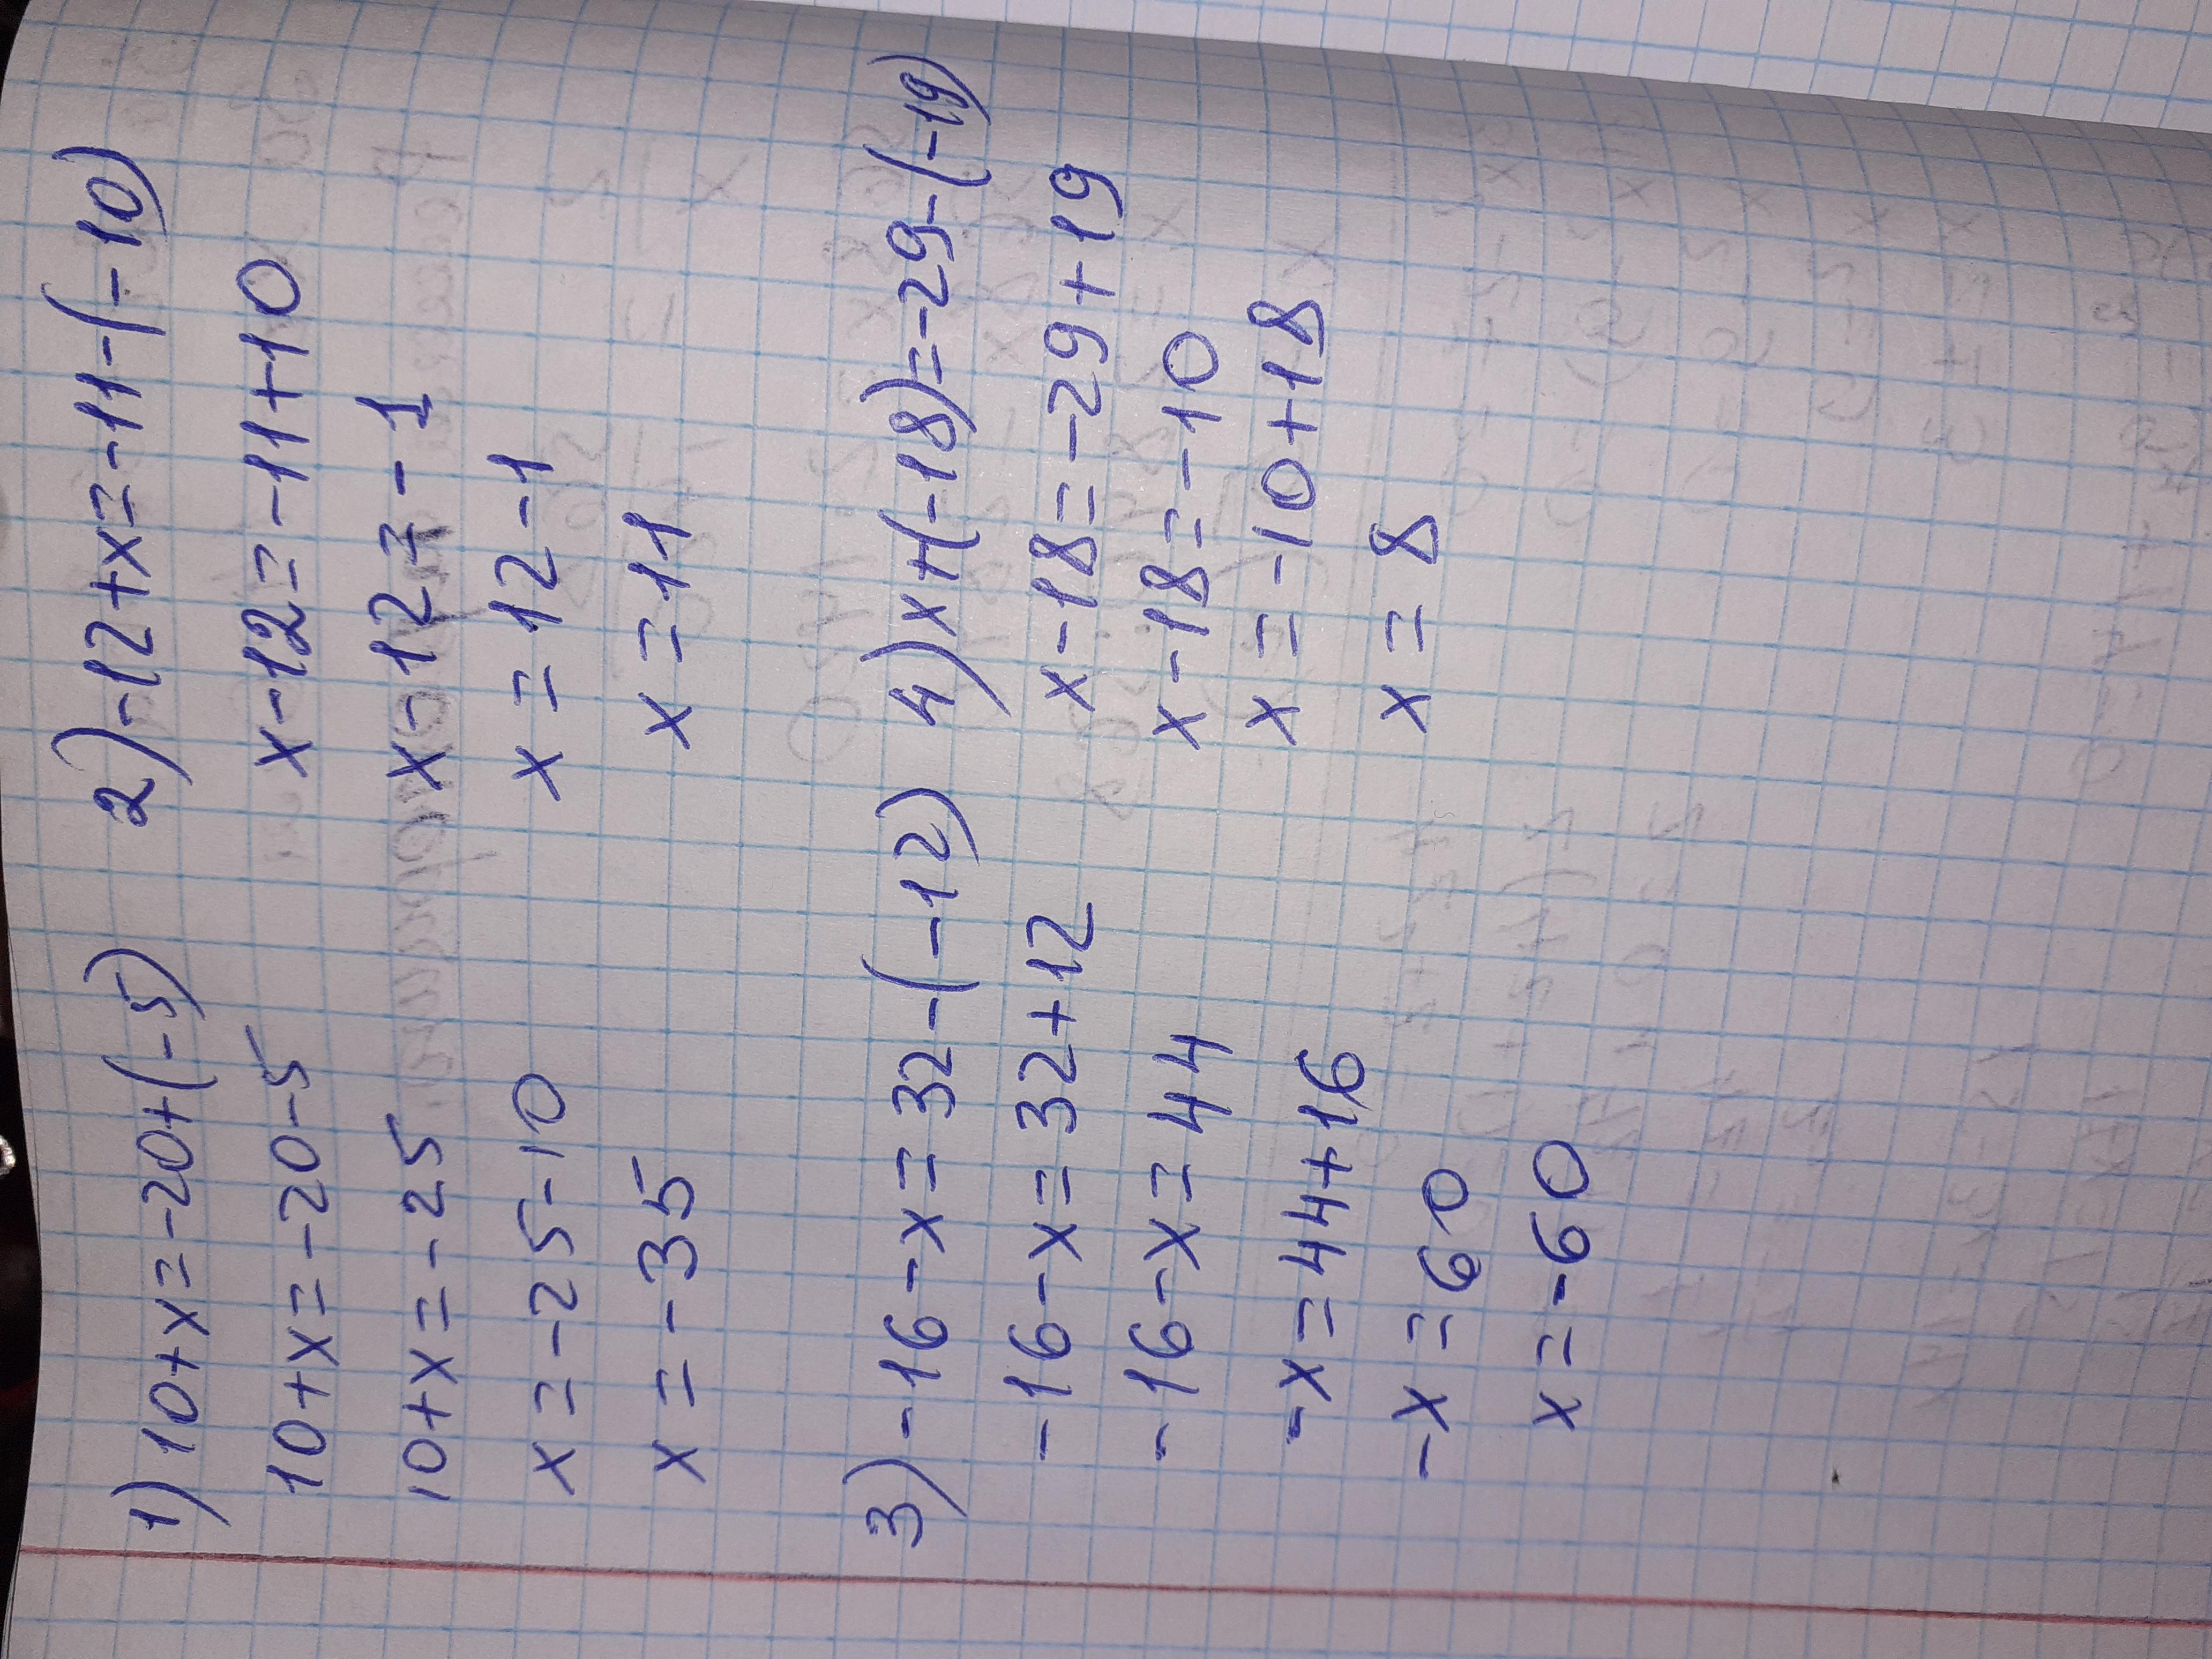 1) 10+x=-20+(-5)
10+x=-20-5
10+x=-25
x=-25-10
x=-35
2) -12+x=-11-(-10)
x-12=-11+10
x-12=-1
x=12-1
x=11
3) -16-x=32-(-12)
-16-x=32+12
-16-x=44
-x=44+16
-x=60
x=-60
4) x+(-18)=-29-(-19)
x-18=-29+19
x-18=-10
x=-10+18
x=8